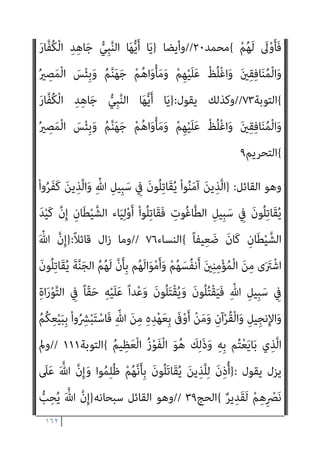 فَأَوْلَىٰ لَهُمْ } محمد٢٠//وأيضا {يَا أَيُّهَا النَّبِيُّ جَاهِدِ الْكُفَّارَ
وَالْمُنَافِقِينَ وَاغْلُظْ عَلَيْهِمْ وَمَأْوَاهُمْ جَهَنَّمُ وَبِئْسَ الْمَصِيرُ
}التوبة٧٣//وكذلك يقول:{يَا أَيُّهَا النَّبِيُّ جَاهِدِ الْكُفَّارَ
وَالْمُنَافِقِينَ وَاغْلُظْ عَلَيْهِمْ وَمَأْوَاهُمْ جَهَنَّمُ وَبِئْسَ الْمَصِيرُ
}التحريم٩
وهو القائل: {الَّذِينَ آمَنُواْ يُقَاتِلُونَ فِي سَبِيلِ اللّهِ وَالَّذِينَ كَفَرُواْ
يُقَاتِلُونَ فِي سَبِيلِ الطَّاغُوتِ فَقَاتِلُواْ أَوْلِيَاء الشَّيْطَانِ إِنَّ كَيْدَ
الشَّيْطَانِ كَانَ ضَعِيفاً }النساء٧٦ //وما زال قائلاً:{إِنَّ اللّهَ
اشْتَرَى مِنَ الْمُؤْمِنِينَ أَنفُسَهُمْ وَأَمْوَالَهُم بِأَنَّ لَهُمُ الجَنَّةَ يُقَاتِلُونَ
فِي سَبِيلِ اللّهِ فَيَقْتُلُونَ وَيُقْتَلُونَ وَعْداً عَلَيْهِ حَقّاً فِي التَّوْرَاةِ
وَالإِنجِيلِ وَالْقُرْآنِ وَمَنْ أَوْفَى بِعَهْدِهِ مِنَ اللّهِ فَاسْتَبْشِرُواْ بِبَيْعِكُمُ
الَّذِي بَايَعْتُم بِهِ وَذَلِكَ هُوَ الْفَوْزُ الْعَظِيمُ }التوبة١١١ //ولم
يزل يقول :{أُذِنَ لِلَّذِينَ يُقَاتَلُونَ بِأَنَّهُمْ ظُلِمُوا وَإِنَّ اللَّهَ عَلَى
نَصْرِهِمْ لَقَدِيرٌ }الحج٣٩ //وهو القائل سبحانه{إِنَّ اللَّهَ يُحِبُّ
١٦٢